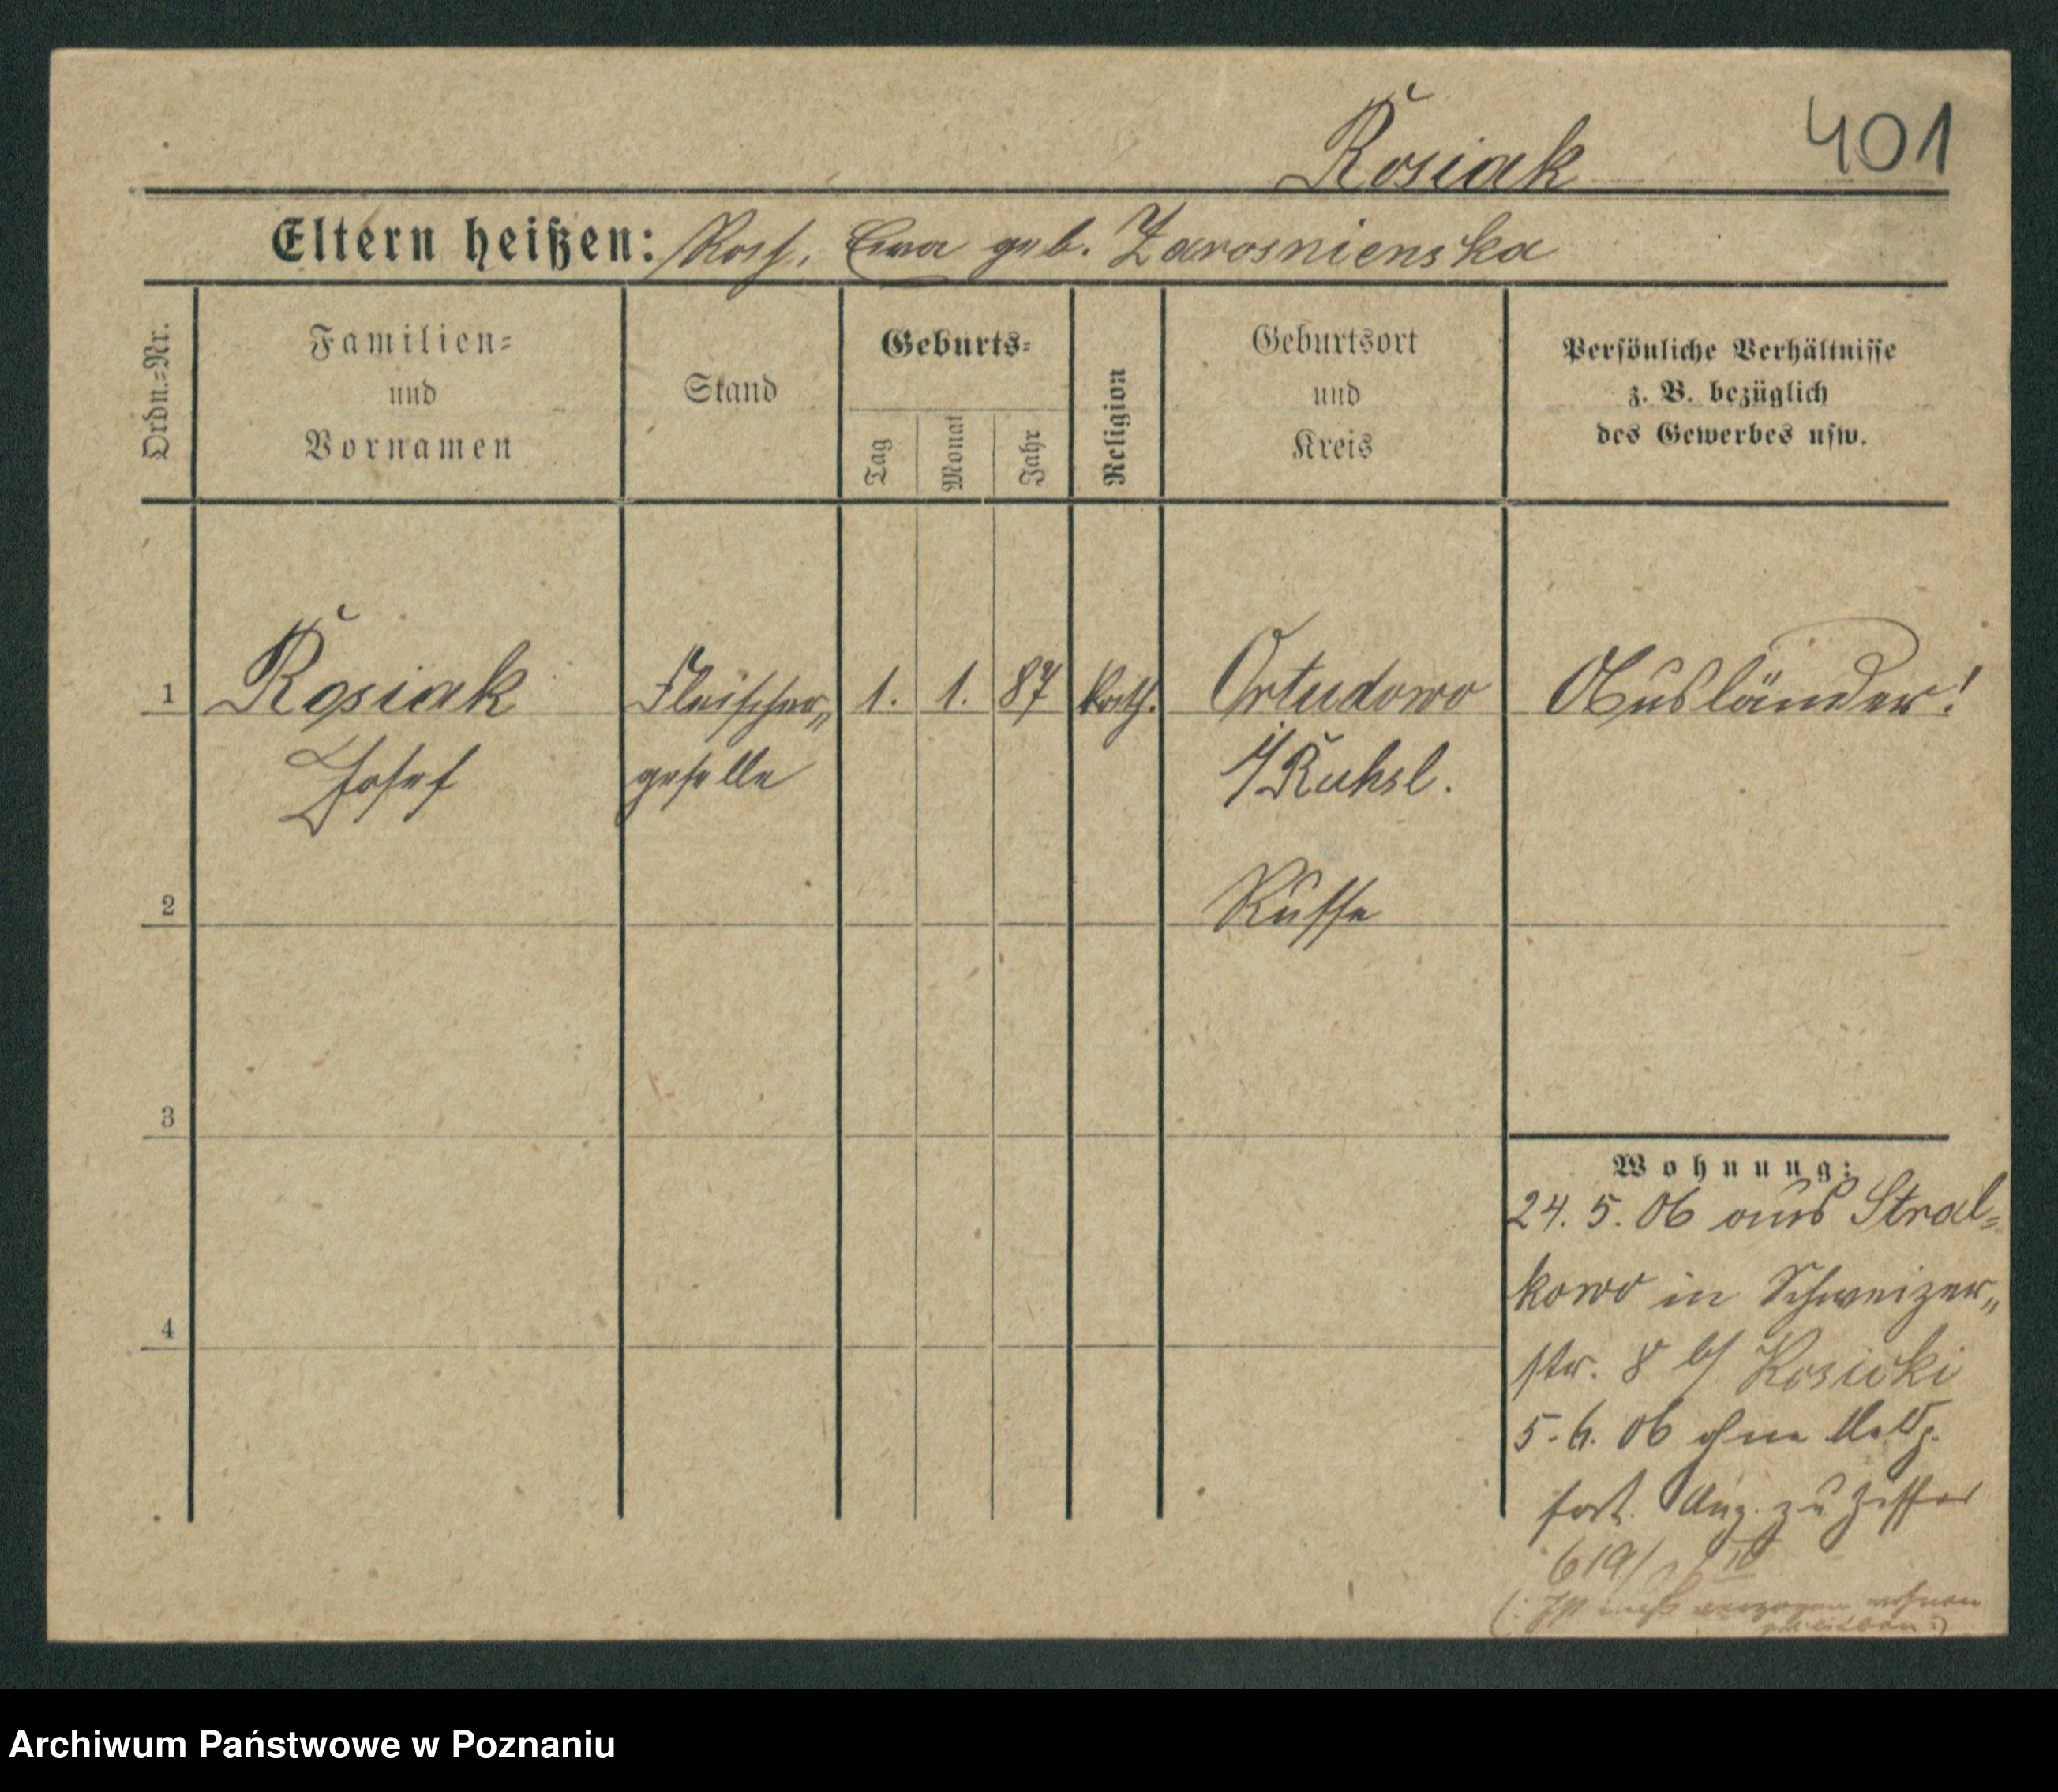 Rosiak 401
Eltern heißen: Ewa geb. Zarosnienska
Ordn.-Nr.
Familien-
und
Vornamen
Stand
Geburts-
Tag
Monat
Jahr
Religion
Geburtsort
und
Kreis
Persönliche Verhältnisse
z. B. bezüglich
des Gewerbes usw.
1 Rosiak Fleischer„ 1. 1. 87 kath. Ortudowo Ausländer!
Josef geselle i/Rußl.
2 Russe
3
Wohnung:
24. 5. 06 aus Stral-
kowo in Schweizer„
4
str. 8 b/ Kosicki
5. 6. 06 ohne Meldg.
fort. Ang. zu
619/
Archiwum Państwowe w Poznaniu